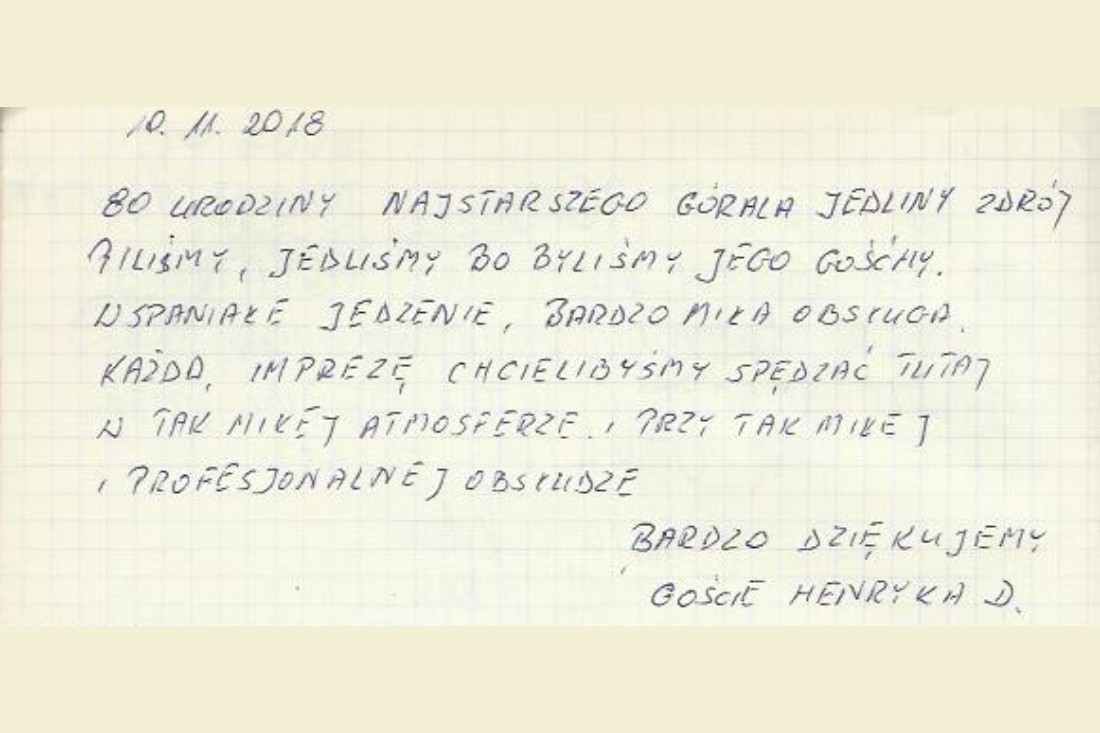 10. 11. 2018
80 URODZINY NAJSTARSZEGO GÓRALA JEDLINY ZDRÓJ
PILIŚMY, JEDLIŚMY BO BYLIŚMY JEGO GOŚĆMY.
WSPANIAŁE JEDZENIE, BARDZO MIŁA OBSŁUGA.
KAŻDĄ IMPREZĘ CHCIELIBYŚMY SPĘDZAĆ TUTAJ
W TAK MIŁEJ ATMOSFERZE. I PRZY TAK MIŁEJ
I PROFESJONALNEJ OBSŁUDZE
BARDZO DZIĘKUJEMY
GOŚCIE HENRYKA D.